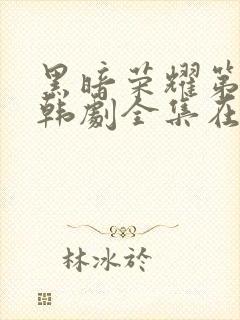 黑暗荣耀第
韩剧全集在
林冰於